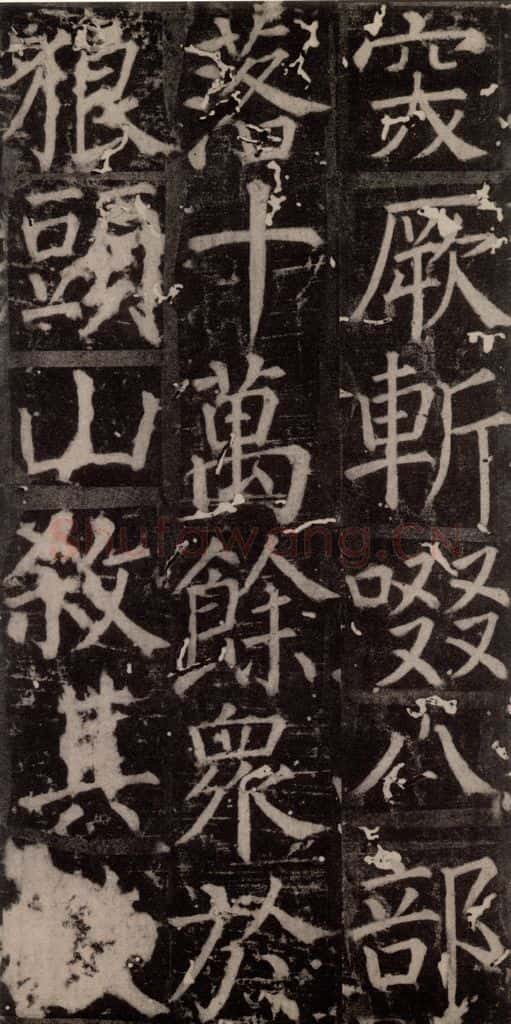 突厥斬啜八部
落十萬餘衆於
狼頭山殺其
shufawang.CN